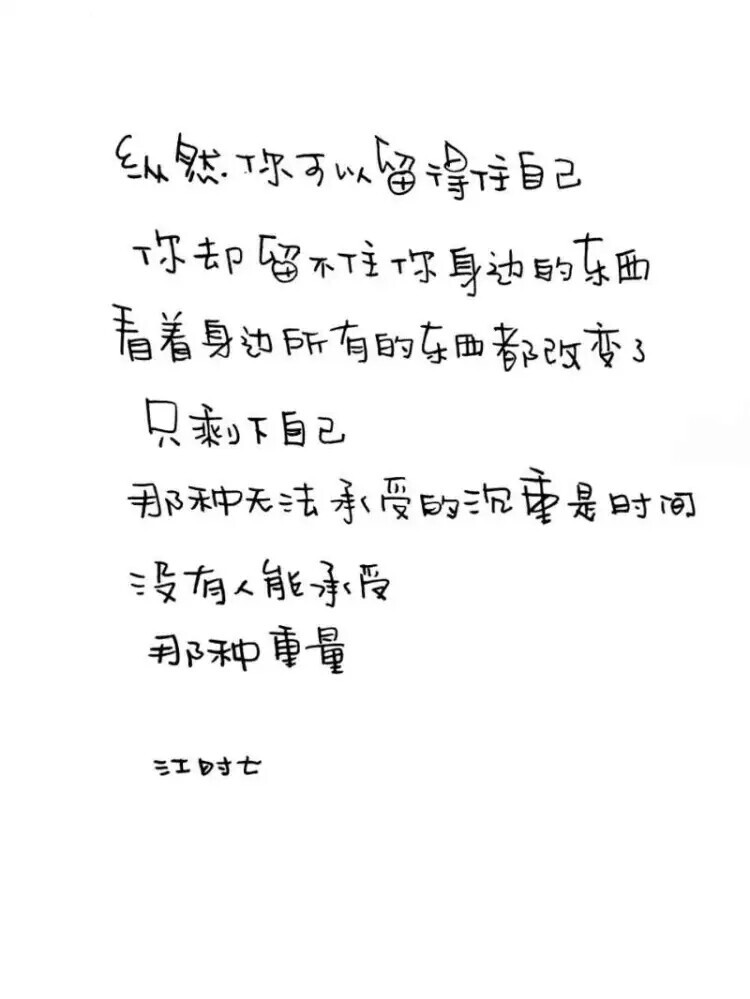 纵然你可以留得住自己
你却留不住你身边的东西
看着身边所有的东西都改变了
只剩下自己
那种无法承受的沉重是时间
没有人能承受
那种重量
江时七